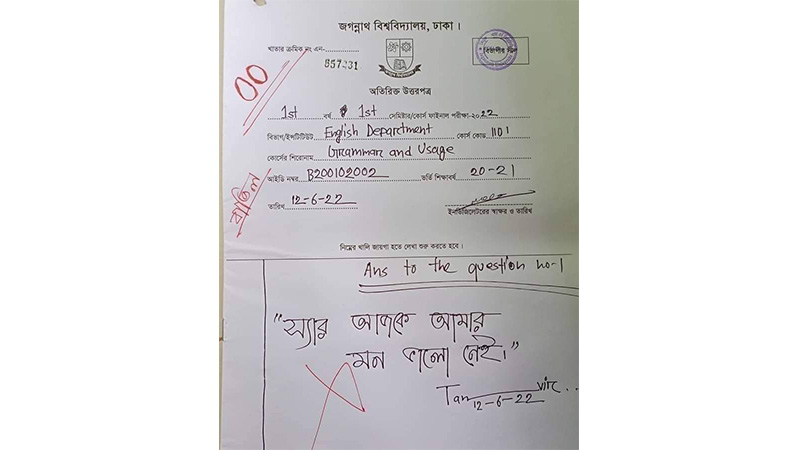 জগন্নাথ বিশ্ববিদ্যালয়, ঢাকা।
খাতার ক্রমিক নং এন-
857231
অতিরিক্ত উত্তরপত্র
00
1st বর্ষ 1st সেমিষ্টার/কোর্স ফাইনাল পরীক্ষা-২০22
বিভাগ/ইন্সটিটিউট English Department কোর্স কোড 1101
কোর্সের শিরোনাম Grammar and Usage
আইডি নম্বর B200102002 ভর্তি শিক্ষাবর্ষ 20-21
বাতিল
তারিখ 12-6-22
ইনভিজিলেটরের স্বাক্ষর ও তারিখ
নিম্নের খালি জায়গা হতে লেখা শুরু করতে হবে।
Ans to the question no-1
"স্যার আজকে আমার
মন ভালো নেই।"
Tanvir..
12-6-22